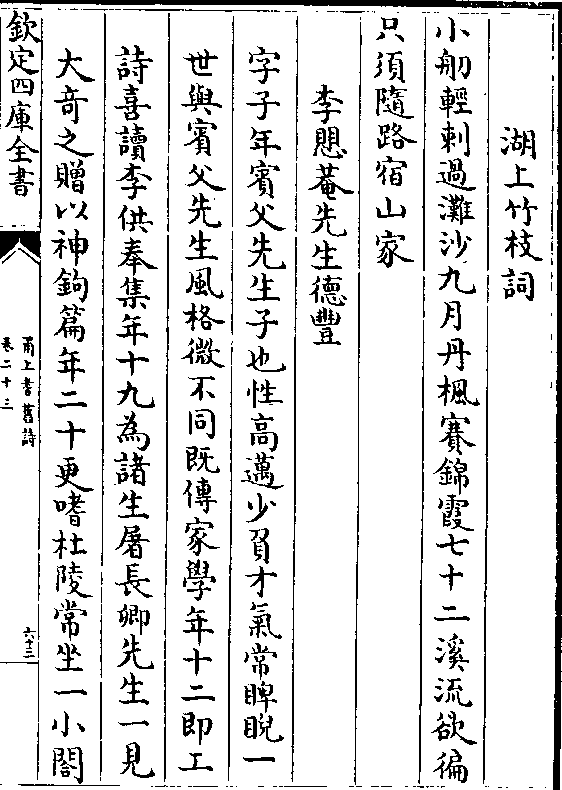 湖上竹枝詞
小舠輕刺過灘沙九月丹楓賽錦霞七十二溪流欲徧
只須隨路宿山家
李愳菴先生德豐
字子年賓父先生子也性高邁少負才氣常睥睨一
世與賓父先生風格微不同既傳家學年十二即工
詩喜讀李供奉集年十九為諸生屠長卿先生一見
大奇之贈以神鉤篇年二十更嗜杜陵常坐一小閣
欽定四庫全書
甬上耆舊詩
卷二十三
六十三